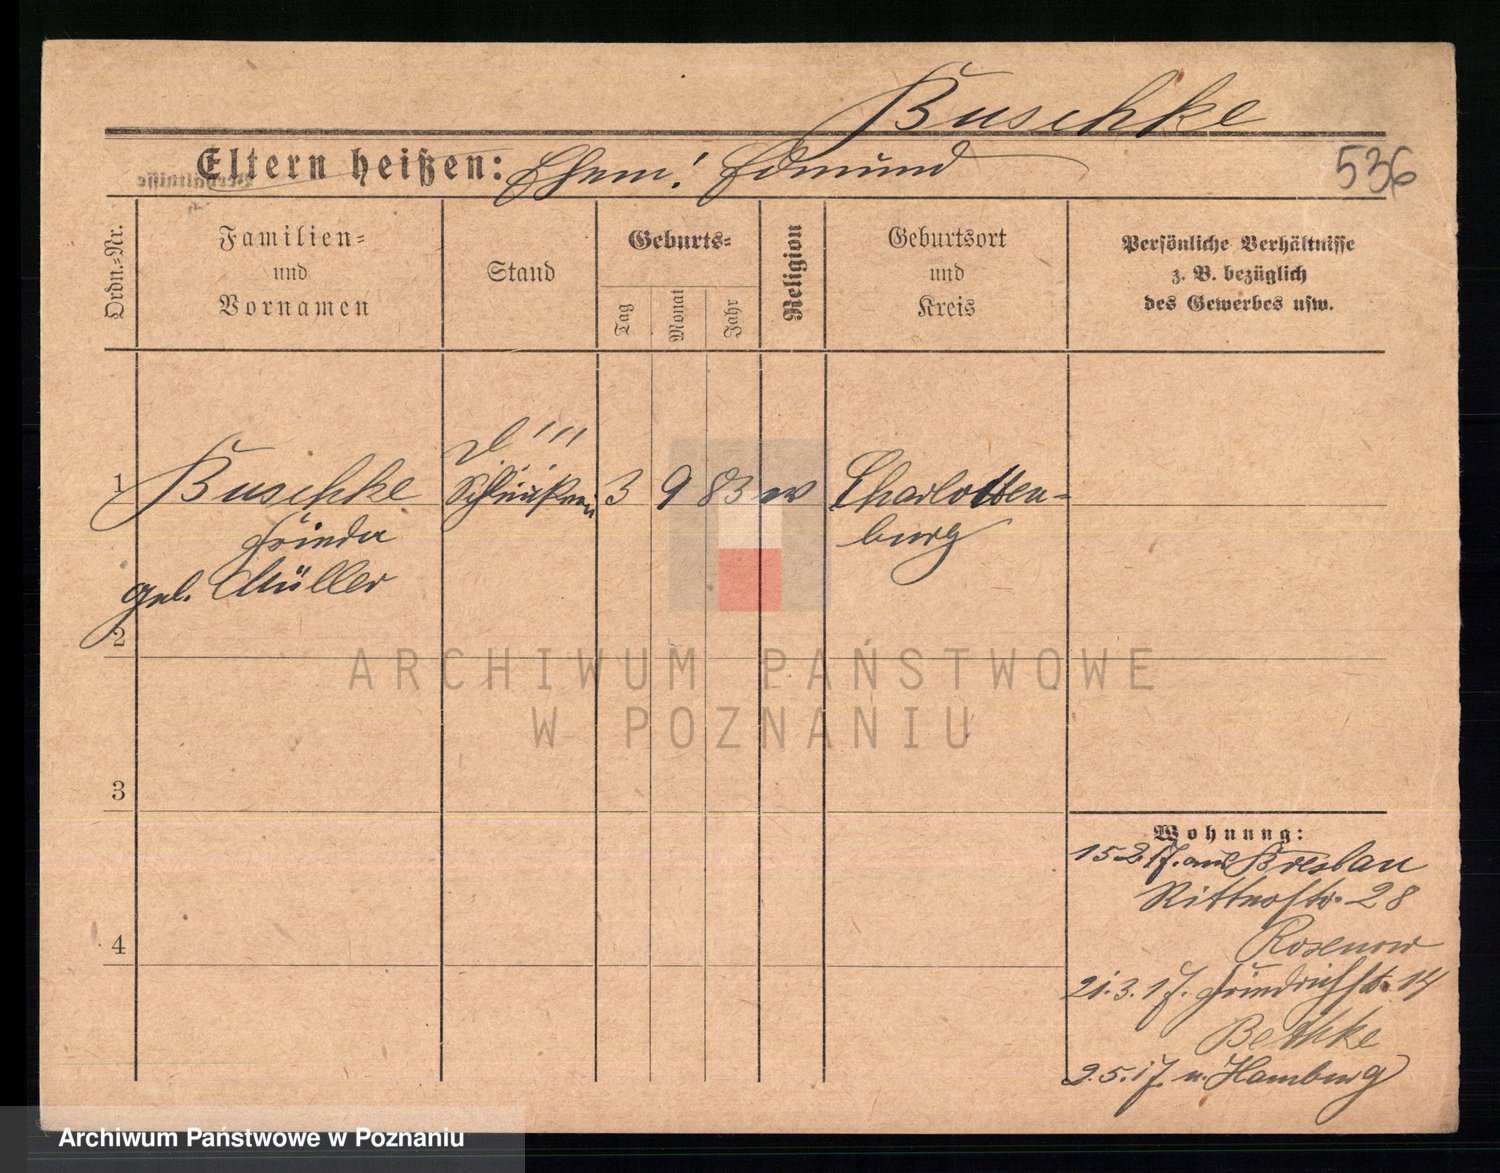 Buschke
Eltern heißen: Ehem: Edmund
536
Ordn.-Nr.
Familien-
und
Vornamen
Stand
Geburts-
Tag
Monat
Jahr
Religion
Geburtsort
und
Kreis
Persönliche Verhältnisse
z. B. bezüglich
des Gewerbes usw.
1 Buschke 3 9 83 ev Charlotten-
Frieda burg
geb. Müller
2
3
4
Wohnung:
15 2 17. aus Breslau
Ritterstr. 28
Rosenow
21.3.17. Friedrichstr. 14
Bethke
2.5.17 n. Hamburg
ARCHIWUM PAŃSTWOWE
W POZNANIU
Archiwum Państwowe w Poznaniu